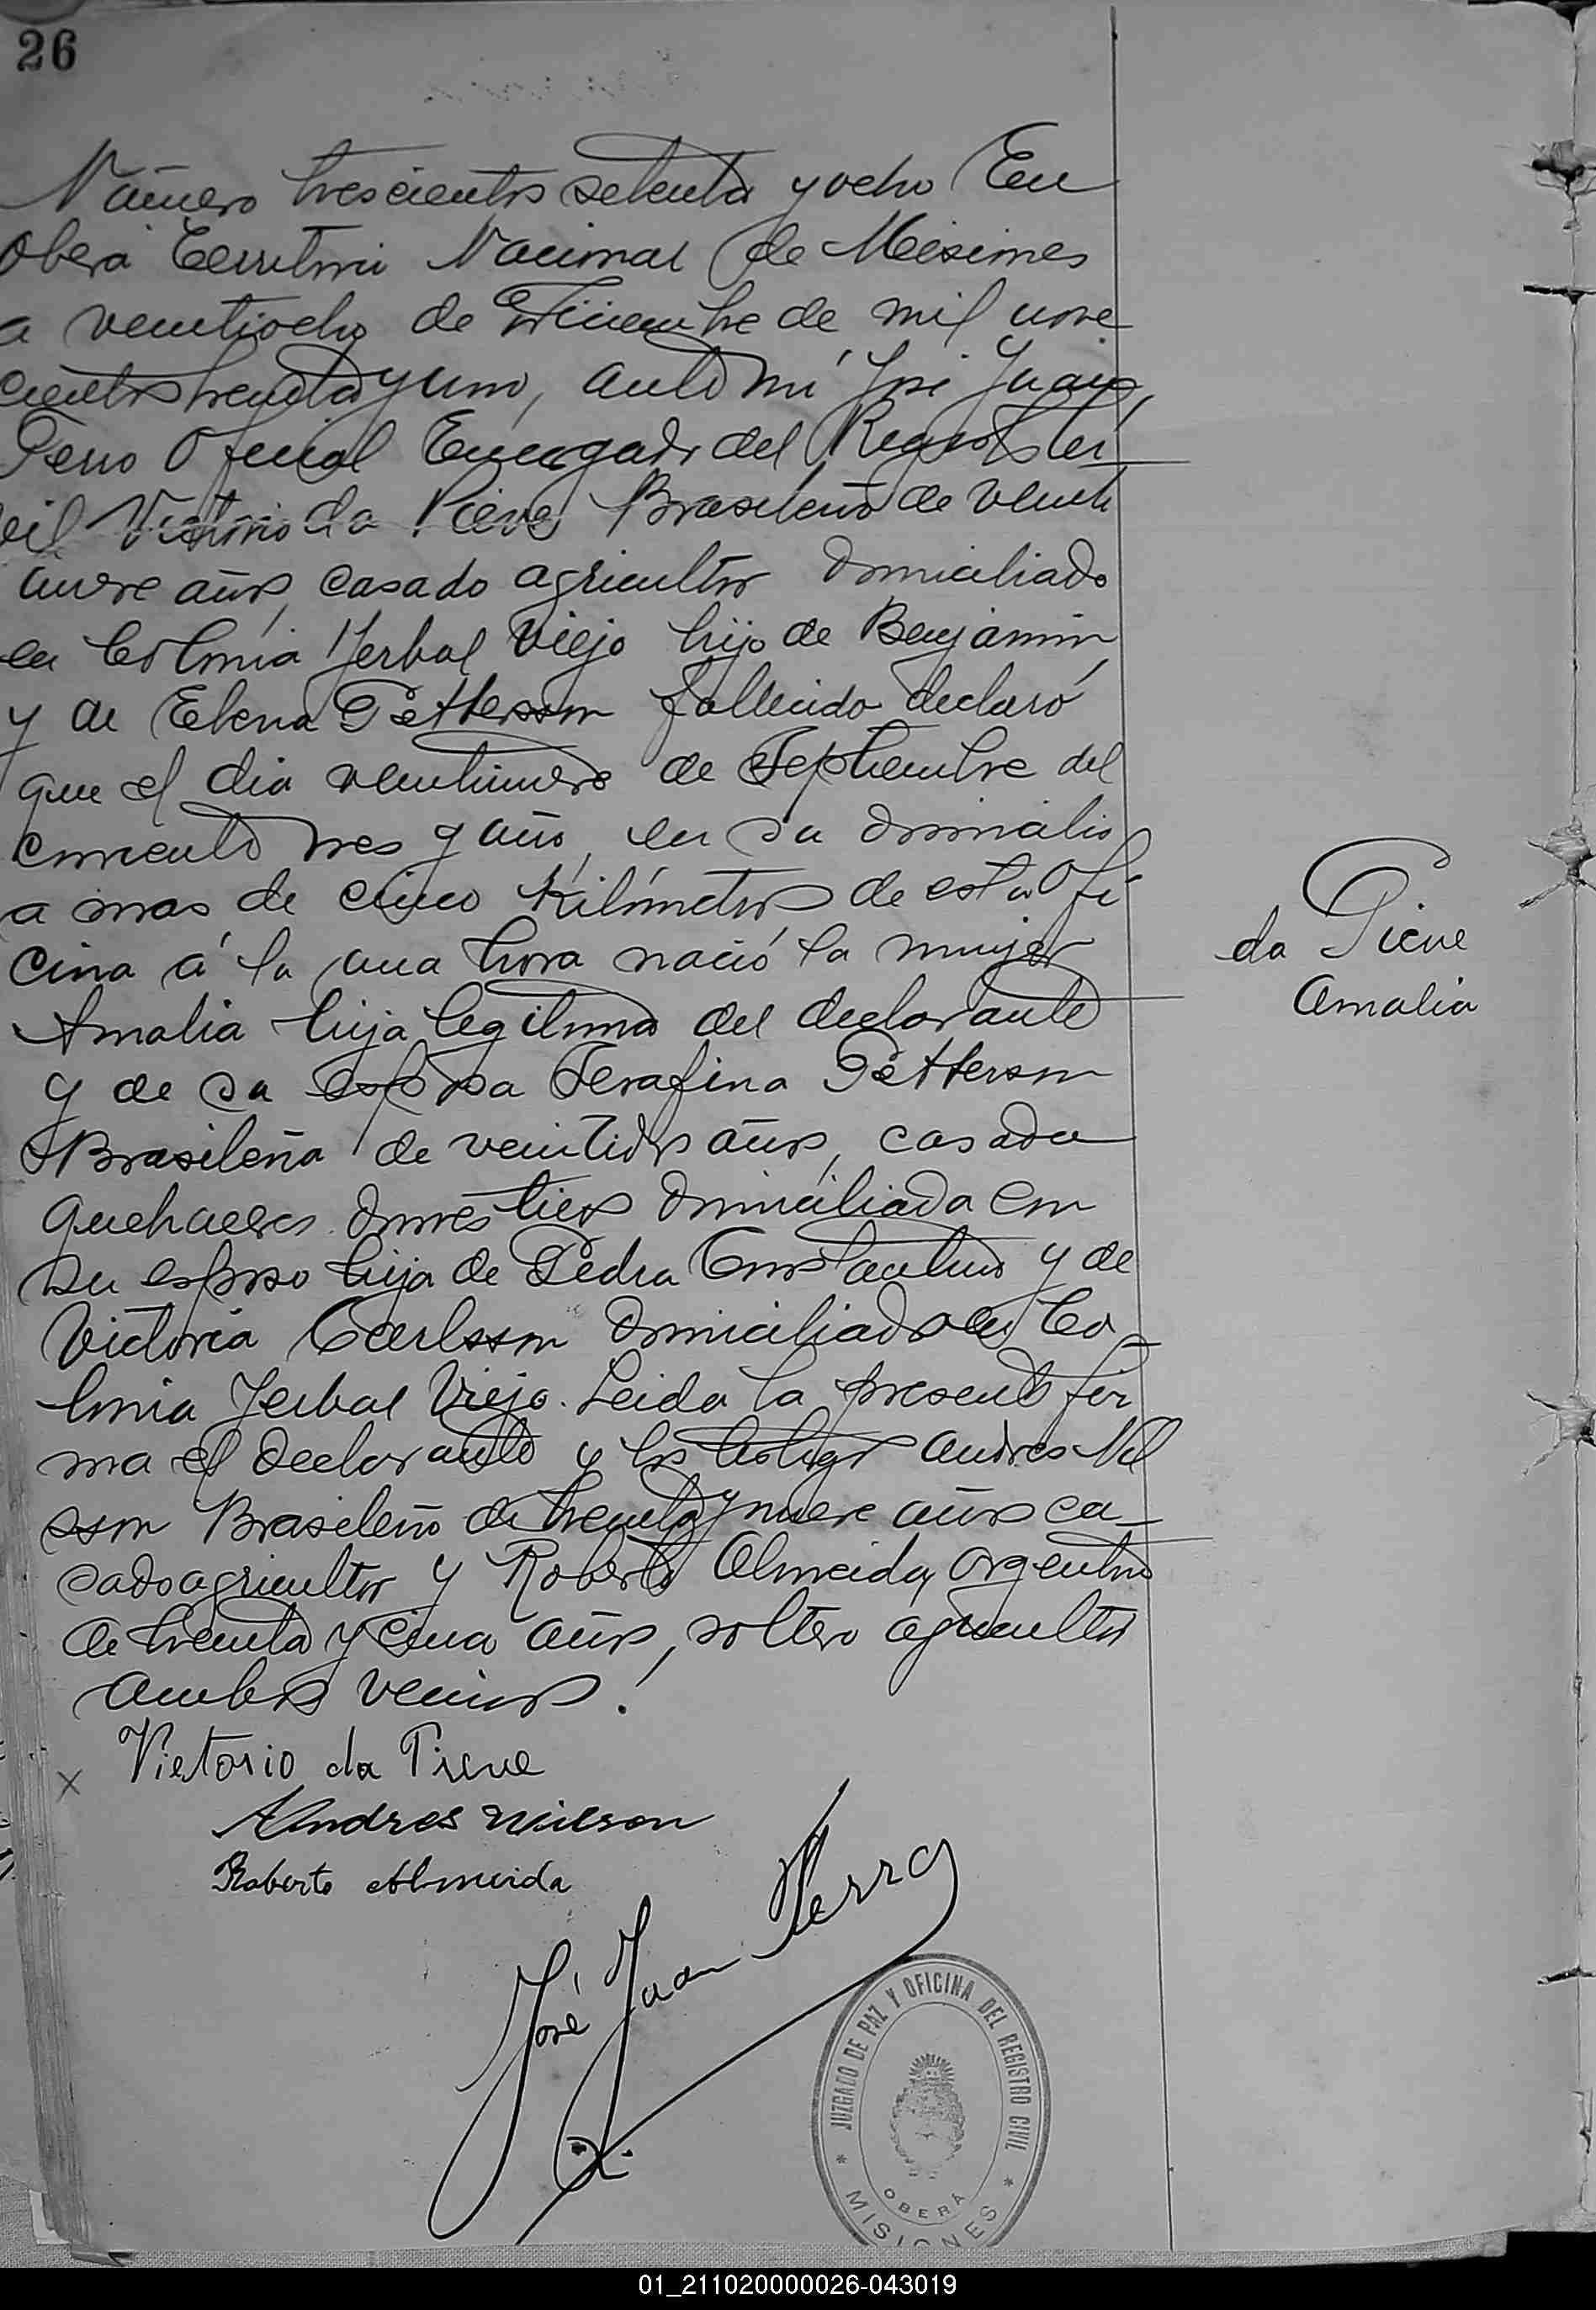 26
Número trescientos setenta y ocho En
Oberá Territorio Nacional de Misiones
a veintiocho de Diciembre de mil nove
cientos treinta y uno, ante mí José Juan
Perro Oficial Encargado del Registro Ci
vil Victorio da Pieve Brasileño de veinti
nueve años, casado agricultor domiciliado
en Colonia Yerbal Viejo hijo de Benjamin
y de Elena Petterson fallecido declaró
que el dia veintinueve de Septiembre del
corriente mes y año, en su domicilio
a mas de cinco Kilómetros de esta Ofi
cina á la una hora nació la mujer
Amalia hija legitima del declarante
y de su esposa Serafina Petterson
Brasileña de veintidos años, casada
quehaceres domésticos domiciliada con
su esposo hija de Pedra Constantino y de
Victoria Carlsson domiciliados en Co
lonia Yerbal Viejo. Leida la presente fir
ma el declarante y los testigos Andres Nil
sson Brasileño de treinta y nueve años ca
sado agricultor y Roberto Almeida, argentino
de treinta y cinco años, soltero agricultor
ambos vecinos.
da Pieve
Amalia
Vietorio da Pieve
x
Andres Nilsson
Roberto Almeida
José Juan Perro
JUZGADO DE PAZ Y OFICINA DEL REGISTRO CIVIL
OBERÁ
* MISIONES *
01_211020000026-043019